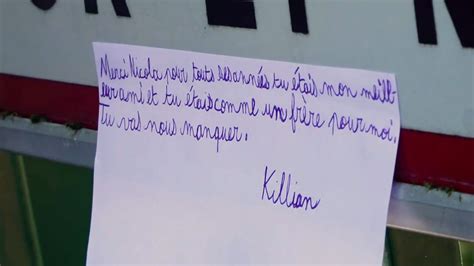 ET N
Merci Nicola pour touts ses années tu étais mon meill-
eur ami et tu étais comme un frère pour moi.
Tu vas nous manquer.
Killian